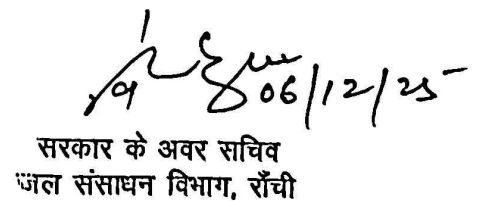 06/12/25
सरकार के अवर सचिव
जल संसाधन विभाग, राँची